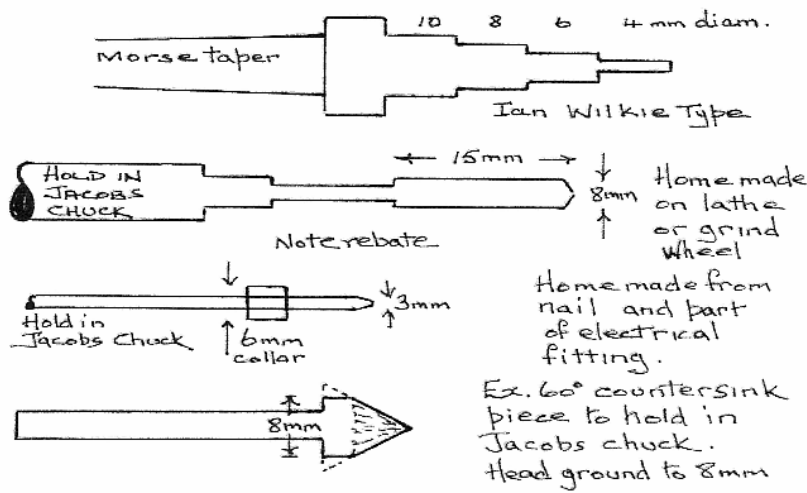 10 8 6 4 mm diam.
Morse taper
Ian Wilkie Type
HOLD IN
JACOBS
CHUCK
15mm
8mm
Home made
on lathe
or grind
wheel
Note rebate
Hold in
Jacobs Chuck
6mm
collar
3mm
Home made from
nail and part
of electrical
fitting.
8mm
Ex. 60° countersink
piece to hold in
Jacobs chuck.
Head ground to 8mm